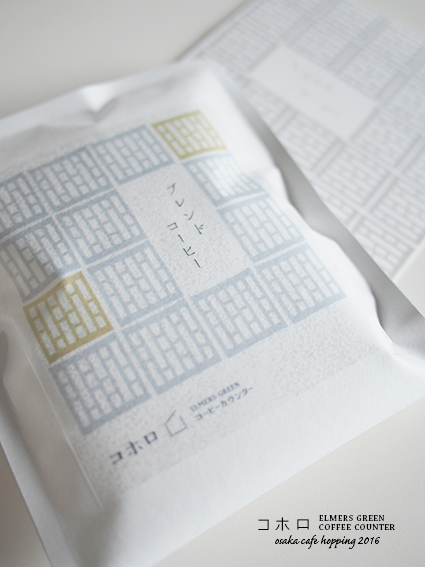 ブレンド
コーヒー
コホロ
ELMERS GREEN
コーヒーカウンター
コホロ ELMERS GREEN
COFFEE COUNTER
osaka cafe hopping 2016